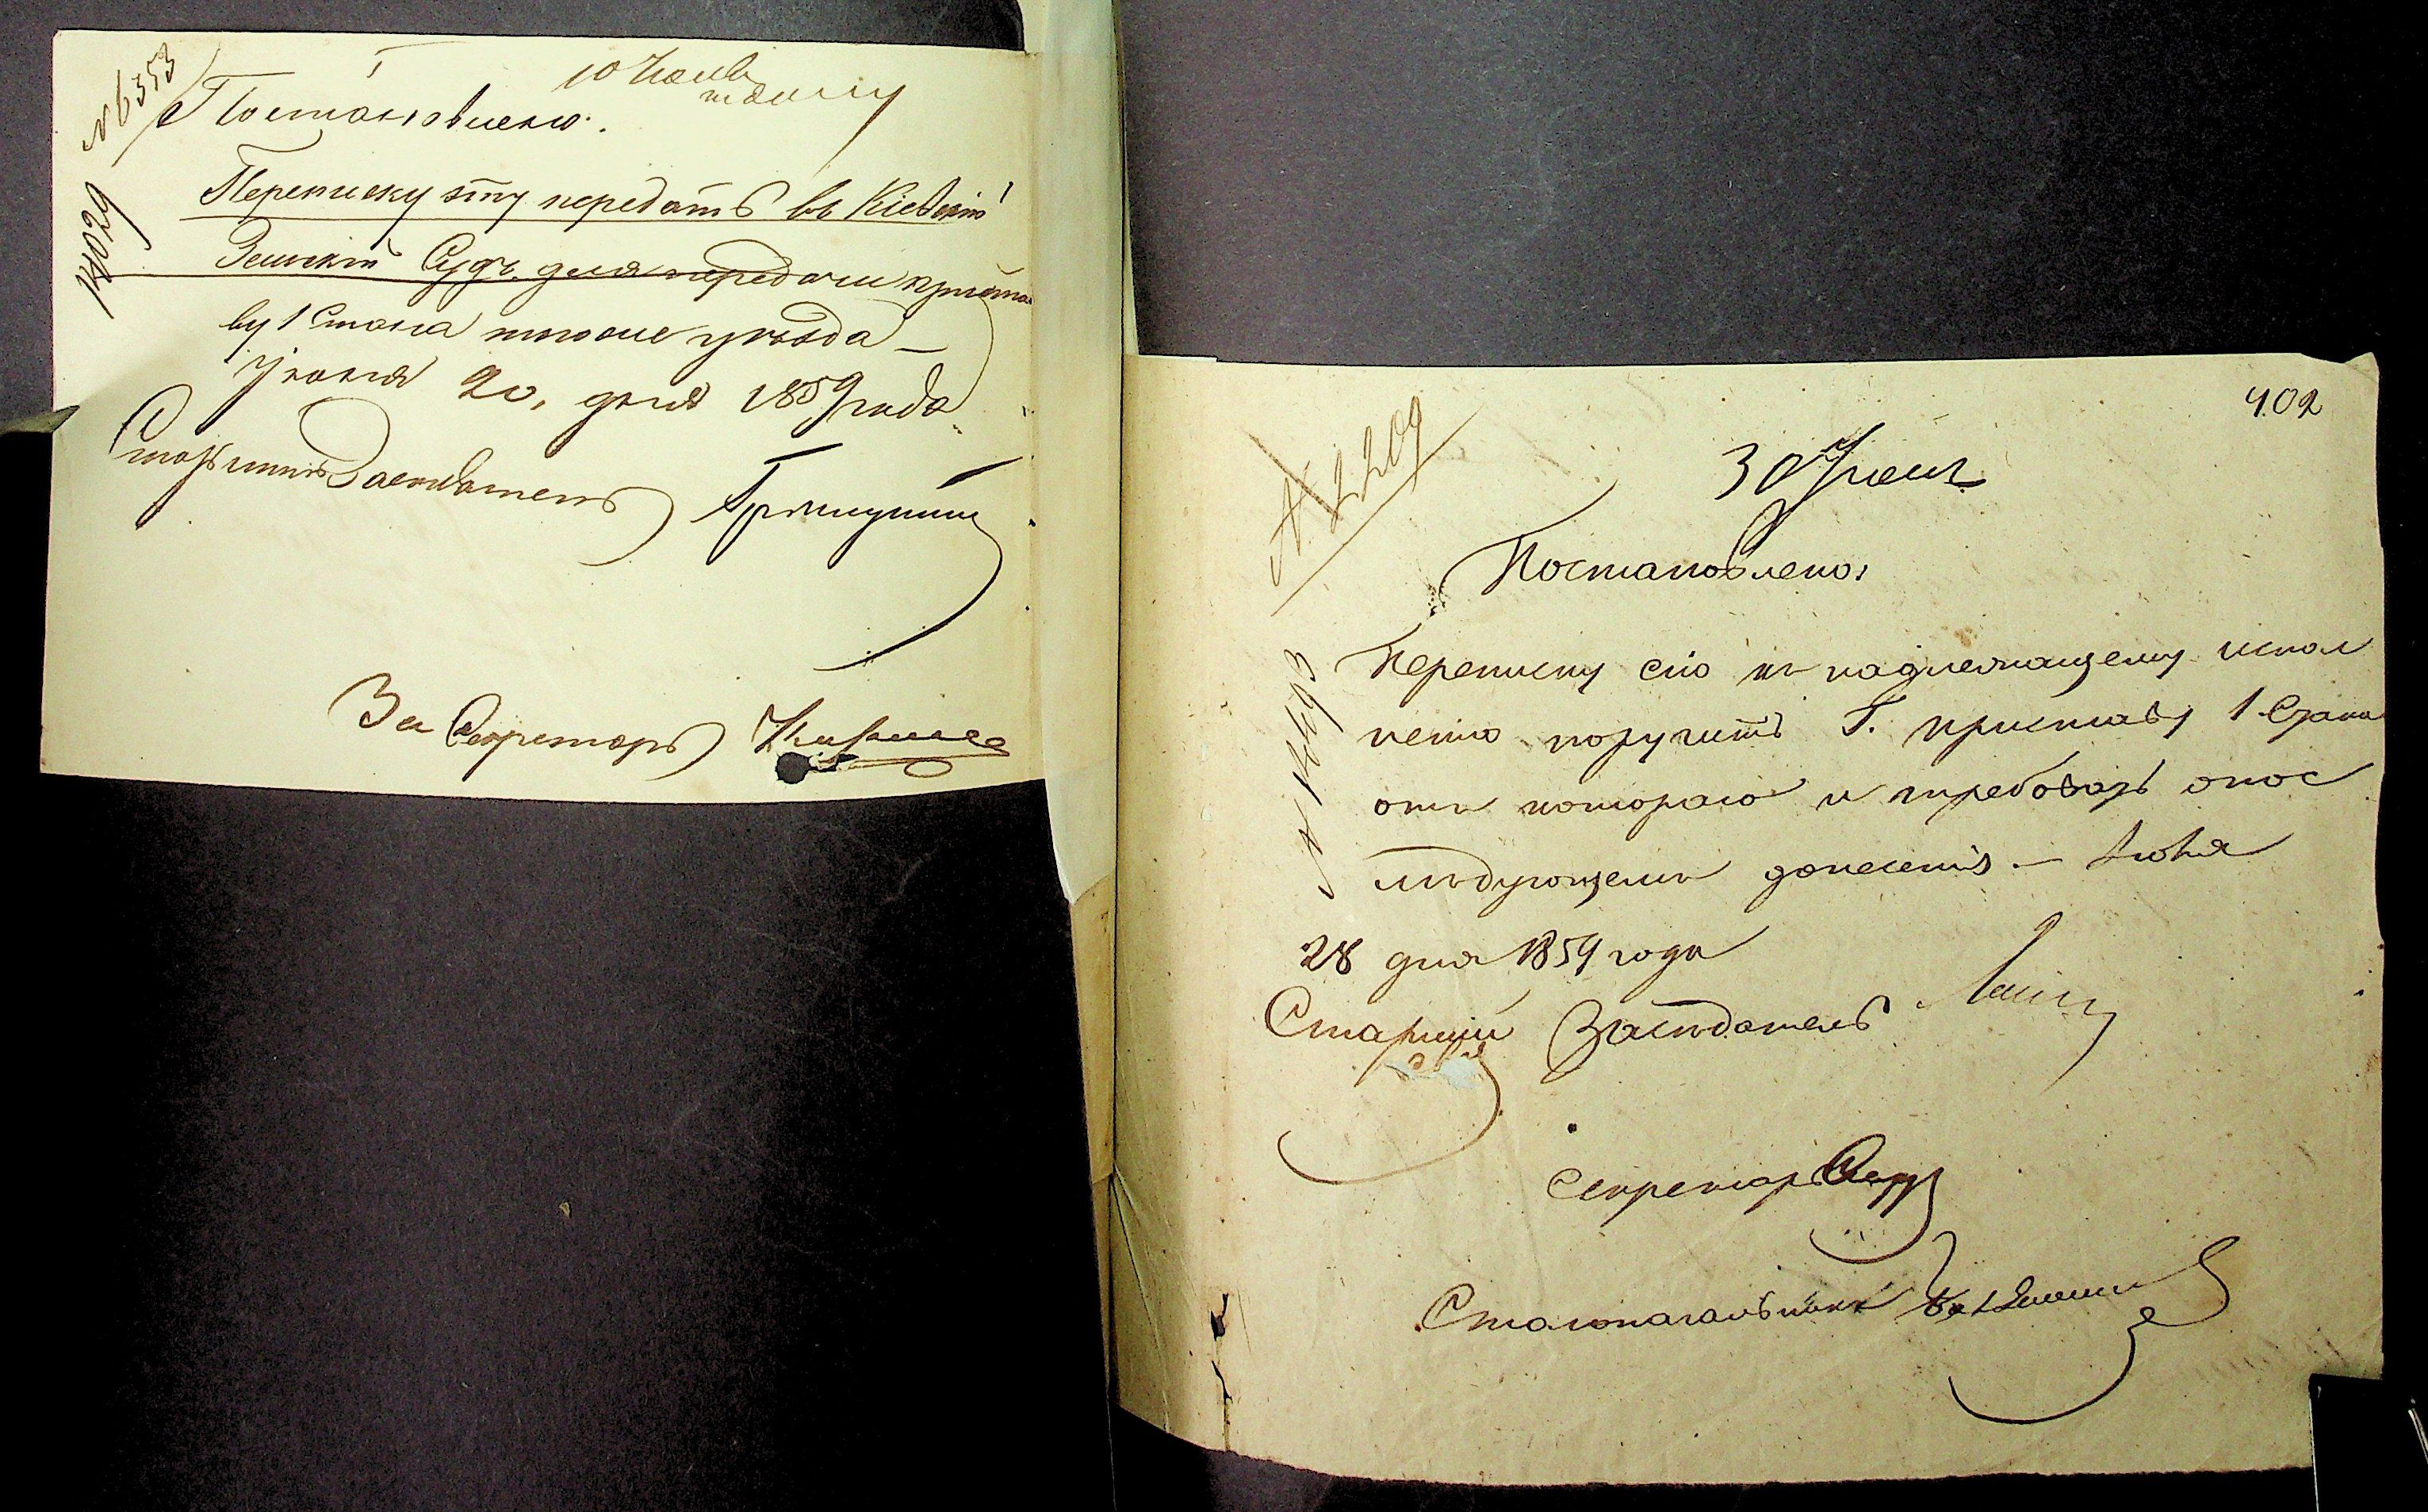 № 6353
Постановлено.
Переписку эту передать въ Кіевскій
Земскій Судъ для передачи приста
ву 1 Стана того же уѣзда —
Іюня 20, дня 1859 года
Старшій Засѣдатель
За Секретаря
14029
402
№ 2209
30 Іюня
Постановлено:
Переписку сію къ надлежащему испол
ненію поручить Г. приставу 1 Стана
отъ котораго и требовать о пос
лѣдующемъ донесенія. — Іюня
28 дня 1859 года
Старшій Засѣдатель
Секретарь
Столоначальникъ